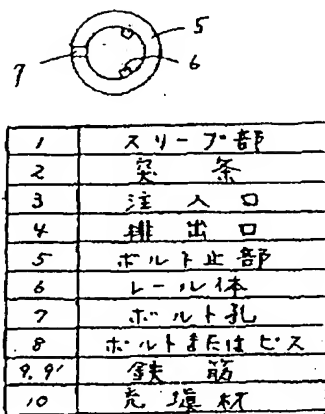 5
6
7
1 スリーブ部
2 突条
3 注入口
4 排出口
5 ボルト止部
6 レール体
7 ボルト孔
8 ボルトまたはビス
9.9' 鉄筋
10 充填材